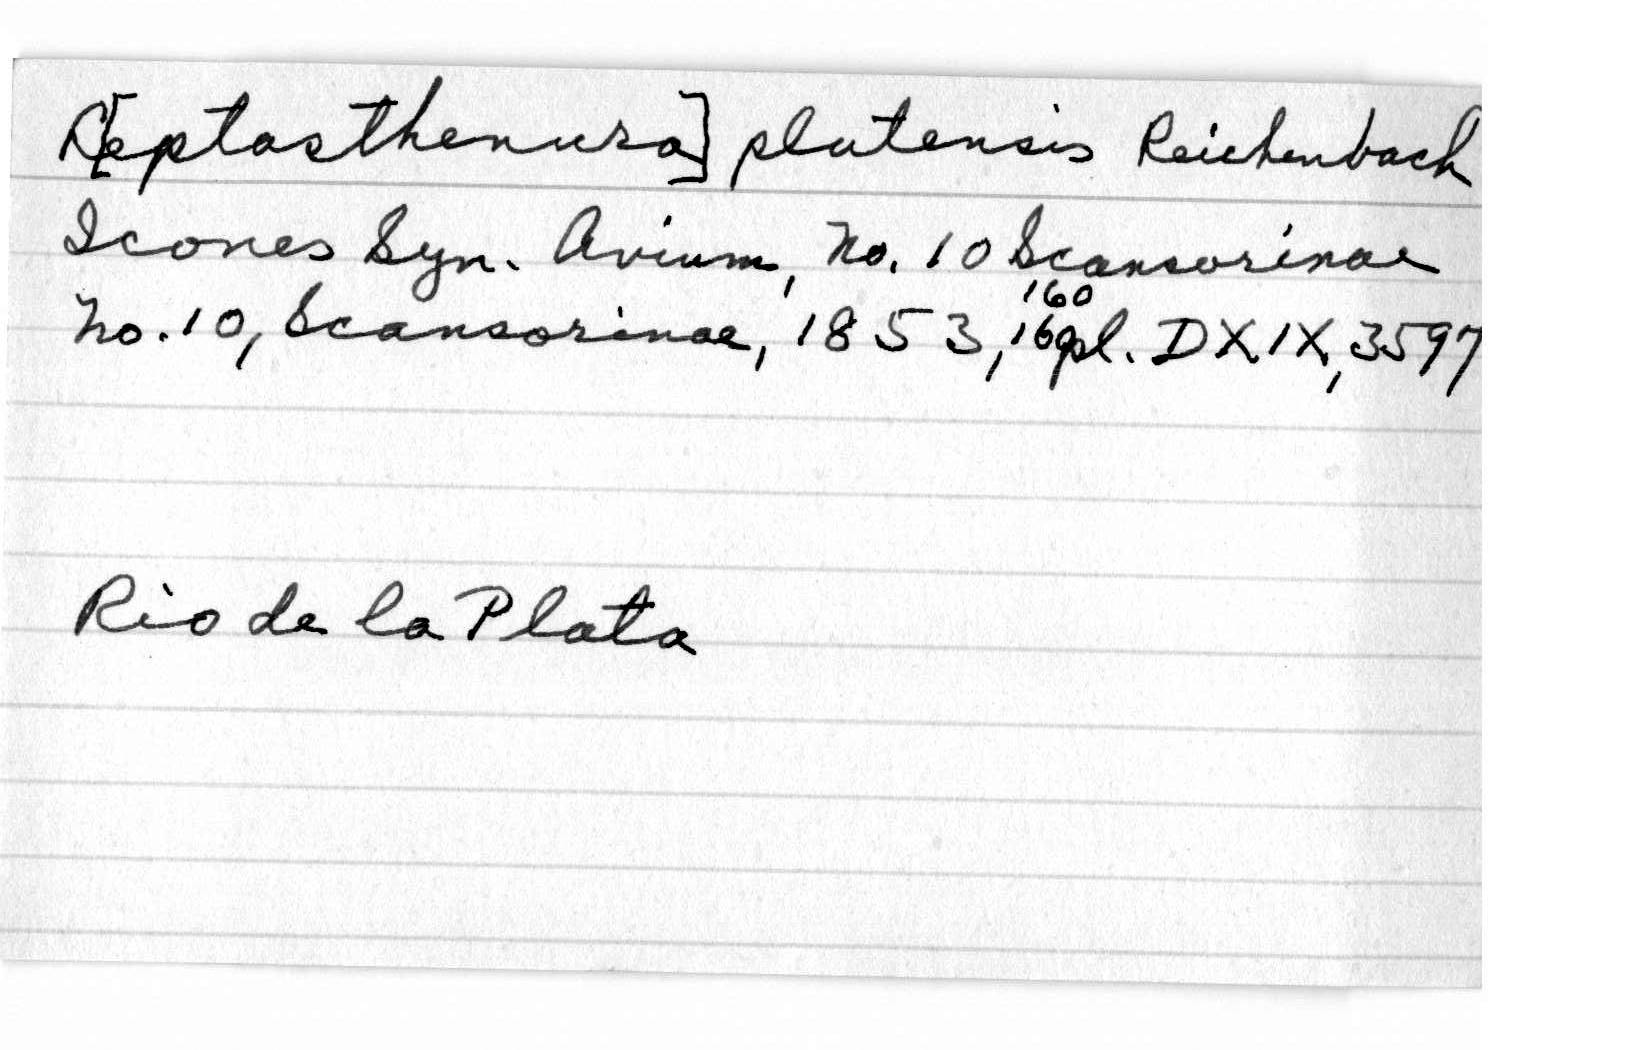 L[eptasthenura] platensis Reichenbach
Icones Syn. Avium, No. 10 Scansorinae
No. 10, Scansorinae, 1853, 160 pl. DXIX, 3597
Rio de la Plata